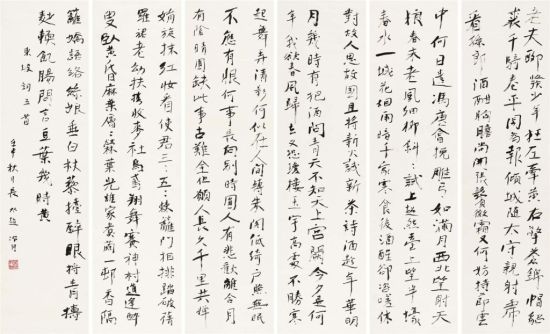 老夫聊發少年狂左牽黃右擎蒼錦帽貂
裘千騎卷平岡為報傾城隨太守親射虎
看孫郎酒酣胸膽尚開張鬢微霜又何妨持節雲
中何日遣馮唐會挽雕弓如滿月西北望射天
狼春未老風細柳斜斜試上超然臺上望半壕
春水一城花烟雨暗千家寒食後酒醒卻咨嗟休
對故人思故國且將新火試新茶詩酒趁年華明
月幾時有把酒問青天不知天上宮闕今夕是何
年我欲乘風歸去又恐瓊樓玉宇高處不勝寒
起舞弄清影何似在人間轉朱閣低綺戶照無眠
不應有恨何事長向別時圓人有悲歡離合月
有陰晴圓缺此事古難全但願人長久千里共嬋
娟旋抹紅妝看使君三三五五棘籬門相排踏破蒨
羅裙老幼扶攜收麥社烏鳶翔舞賽神村道逢醉
叟臥黃昏麻葉層層檾葉光誰家煮繭一村香隔
籬嬌語絡絲娘垂白杖藜擡醉眼捋青擣
麨軟飢腸問言豆葉幾時黃
東坡詞五首